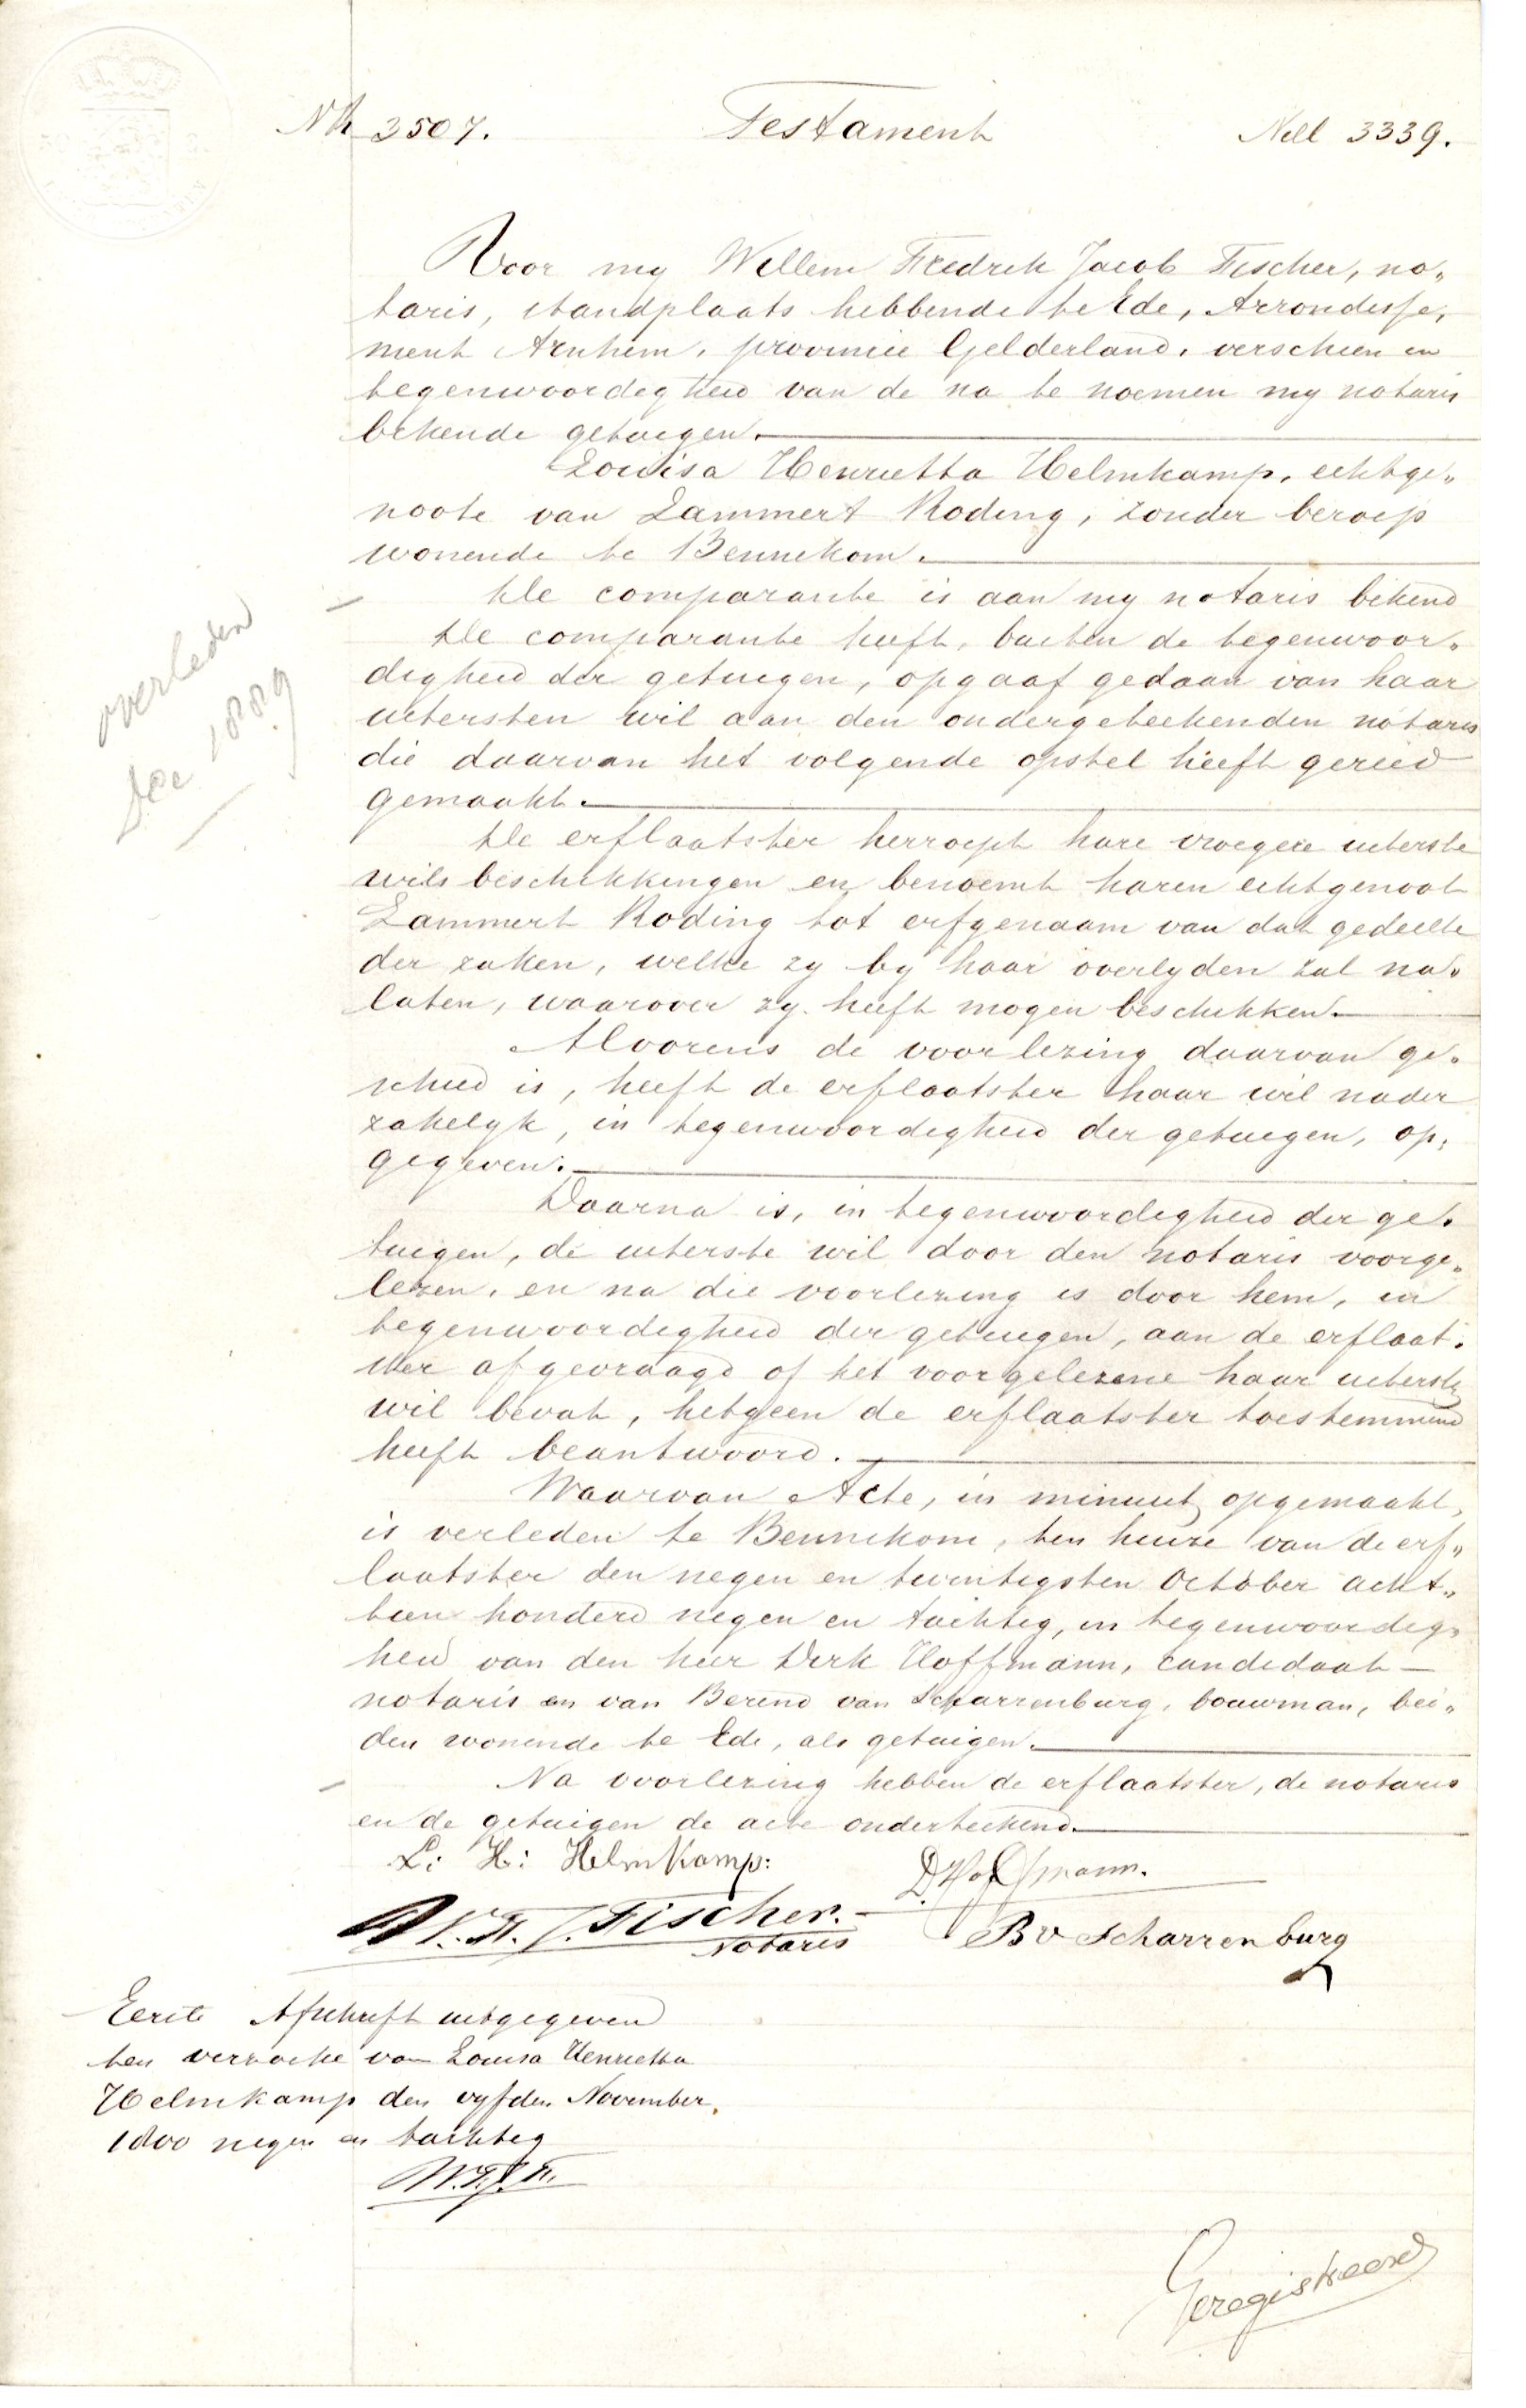 No 3507. Testament Nell 3339.
Voor my Willem Fredrik Jacob Fischer, no„
taris, standplaats hebbende te Ede, Arrondisse„
ment Arnhem, provincie Gelderland, verscheen in
tegenwoordigheid van de na te noemen my notaris
bekende getuigen.
Louisa Henrietta Helmkamp, echtge„
noote van Lammert Roding, zonder beroep
wonende te Bennekom.
De comparante is aan my notaris bekend
De comparante heeft, buiten de tegenwoor„
digheid der getuigen, opgaaf gedaan van haar
uitersten wil aan den ondergeteekenden notaris
die daarvan het volgende opstel heeft gereed
gemaakt.
overleden
Dec 1889
De erflaatster herroept hare vroegere uiterste
wils beschikkingen en benoemt haren echtgenoot
Lammert Roding tot erfgenaam van dat gedeelte
der zaken, welke zy by haar overlyden zal na„
laten, waarover zy heeft mogen beschikken.
Alvorens de voorlezing daarvan ge„
schied is, heeft de erflaatster haar wil nader
zakelyk, in tegenwoordigheid der getuigen, op„
gegeven.
Daarna is, in tegenwoordigheid der ge„
tuigen, de uiterste wil door den notaris voorge„
lezen, en na die voorlezing is door hem, in
tegenwoordigheid der getuigen, aan de erflaat„
ster afgevraagd of het voorgelezene haar uiterste
wil bevat, hetgeen de erflaatster toestemmend
heeft beantwoord.
Waarvan Acte, in minuut opgemaakt,
is verleden te Bennekom, ten huize van de erf„
laatster den negen en twintigsten October acht„
tien honderd negen en tachtig, in tegenwoordig„
heid van den heer Derk Hoffmann, candidaat—
notaris en van Berend van Scharrenburg, bouwman, bei„
den wonende te Ede, als getuigen.
Na voorlezing hebben de erflaatster, de notaris
en de getuigen de acte onderteekend.
L: H: Helmkamp: D. Hoffmann.
W. F. J. Fischer. Notaris B v Scharrenburg
Eerste Afschrift uitgegeven
ten verzoeke van Louisa Henrietta
Helmkamp den vyfden November
1800 negen en tachtig
W.F.J.F.
Geregistreerd